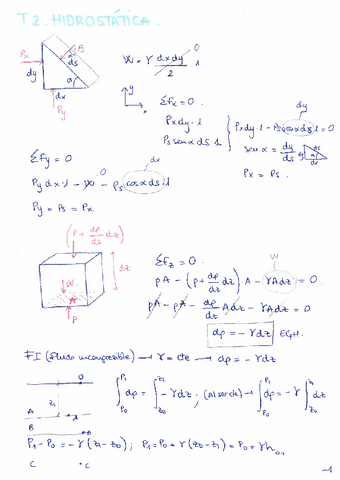 T2. HIDROSTÁTICA.
W = γ dxdy/2 · 1
0
Px
Ps
dy
ds
α
dx
Py
y
x
ΣFx = 0
Px dy · 1
Ps sen α ds · 1
dy
Px dy · 1 - Ps sen α ds · 1 = 0
sen α = dy/ds
Px = Ps.
ΣFy = 0
dx
Py dx · 1 - W - Ps cos α ds · 1
0
Py = Ps = Px
(P + dp/dz dz)
dz
W
A
P
ΣFz = 0
W
pA - (p + dp/dz dz) A - γA dz = 0
pA - pA - dp/dz A dz - γA dz = 0
dp = - γ dz EGH.
F.I (fluido incompresible) → γ = cte → dp = - γ dz
0
z1
A
B
C
C
∫P0 P1 dp = ∫z0 z1 - γ dz ; (al ser cte) → ∫P0 P1 dp = - γ ∫z0 z1 dz
P1 - P0 = - γ (z1 - z0) ; P1 = P0 + γ (z0 - z1) = P0 + γ h01
1